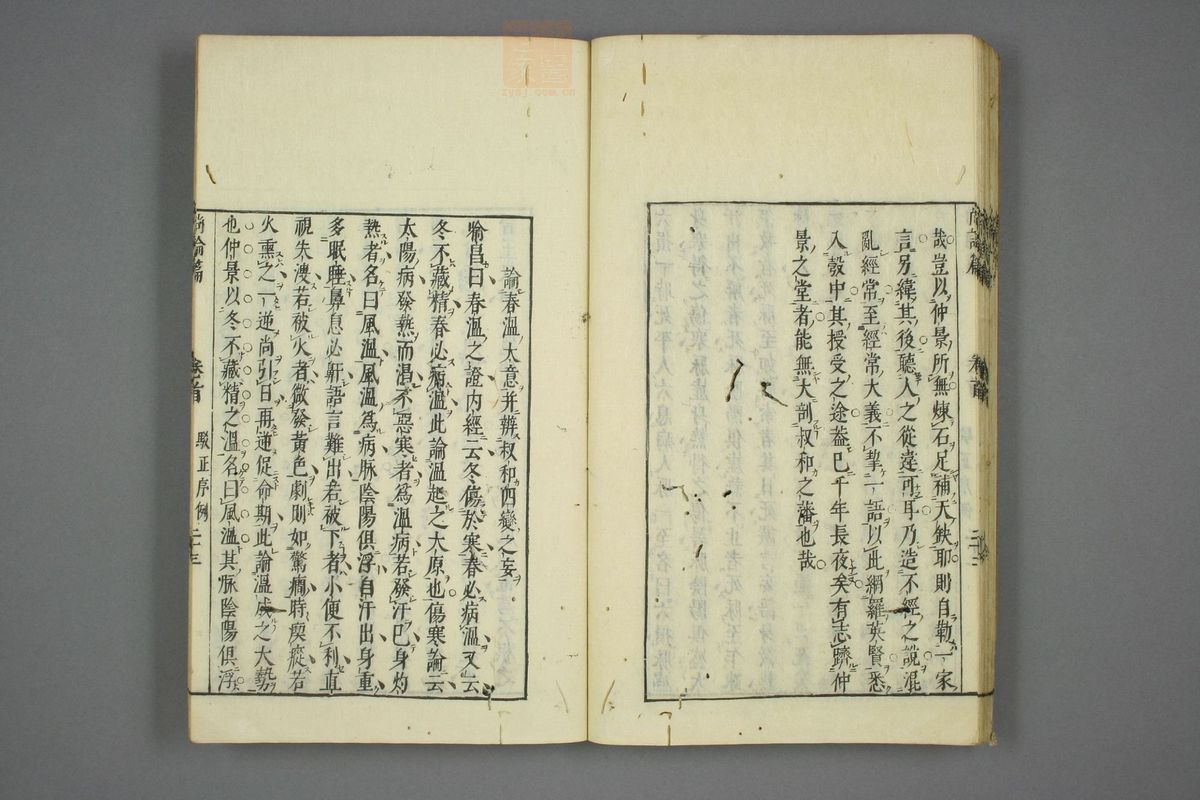 尚論篇 卷首 二十二
哉豈以仲景所無煉石足補天缺耶則自勒一家
言另緯其後聽人之從違可耳乃造不經之說混
亂經常至經常大義不挈一語以此網羅英賢悉
入彀中其授受之途蓋已千年長夜矣有志躋仲
景之堂者能無大剖叔和之藩也哉
論春溫大意并辨叔和四變之妄
喻昌曰春溫之證內經云冬傷於寒春必病溫又云
冬不藏精春必病溫此論溫起之大原也傷寒論云
太陽病發熱而渴不惡寒者為溫病若發汗已身灼
熱者名曰風溫風溫為病脉陰陽俱浮自汗出身重
多眠睡鼻息必鼾語言難出若被下者小便不利直
視失溲若被火者微發黃色劇則如驚癎時瘈瘲若
火熏之一逆尚引日再逆促命期此論溫成之大勢
也仲景以冬不藏精之溫名曰風溫其脉陰陽俱浮
尚論篇 卷首 駁正序例 二十三
zysj.com.cn